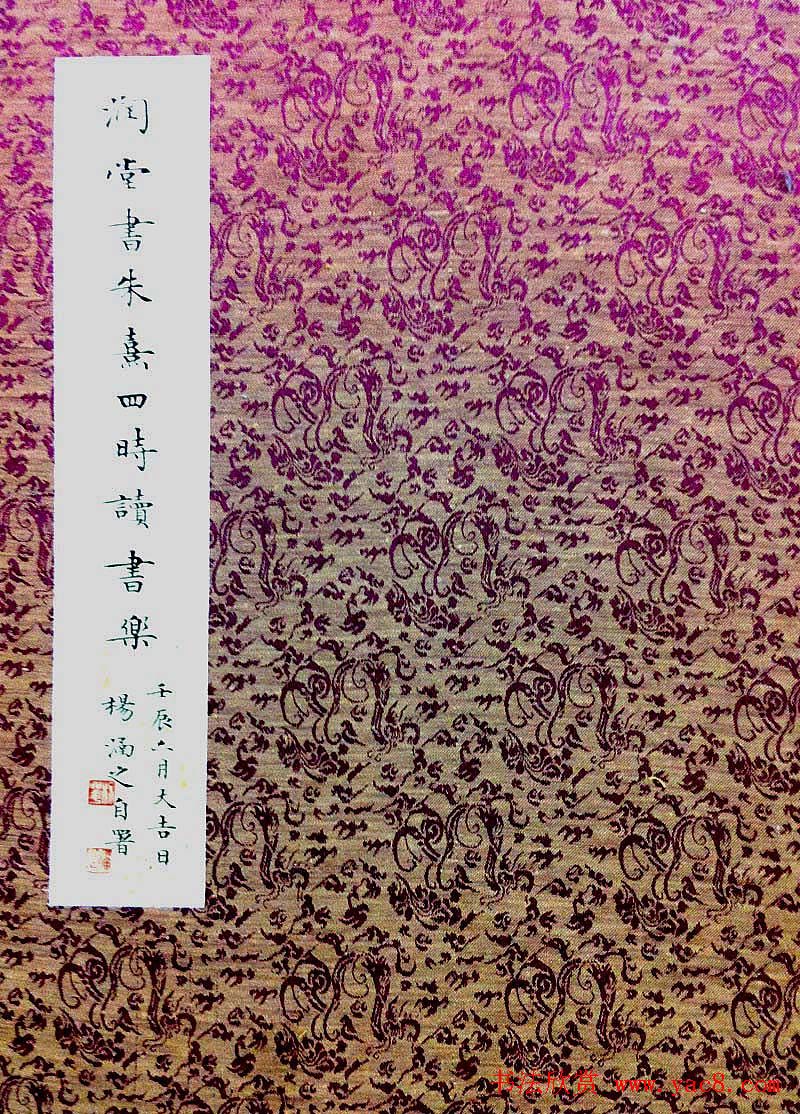 润堂書朱熹四時讀書樂
壬辰六月大吉日
楊涵之自署
书法欣赏 www.yac8.com